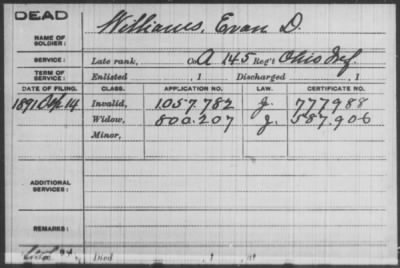 DEAD
NAME OF SOLDIER: Williams, Evan D.
SERVICE: Late rank, Co. A 145 Reg't Ohio Inf.
TERM OF SERVICE: Enlisted , 1 Discharged , 1
DATE OF FILING. CLASS. APPLICATION NO. LAW. CERTIFICATE NO.
1891 14 Invalid, 1.057.782 J. 777988
Widow, 800.207 J. 587.906
Minor,
ADDITIONAL SERVICES:
REMARKS:
Died